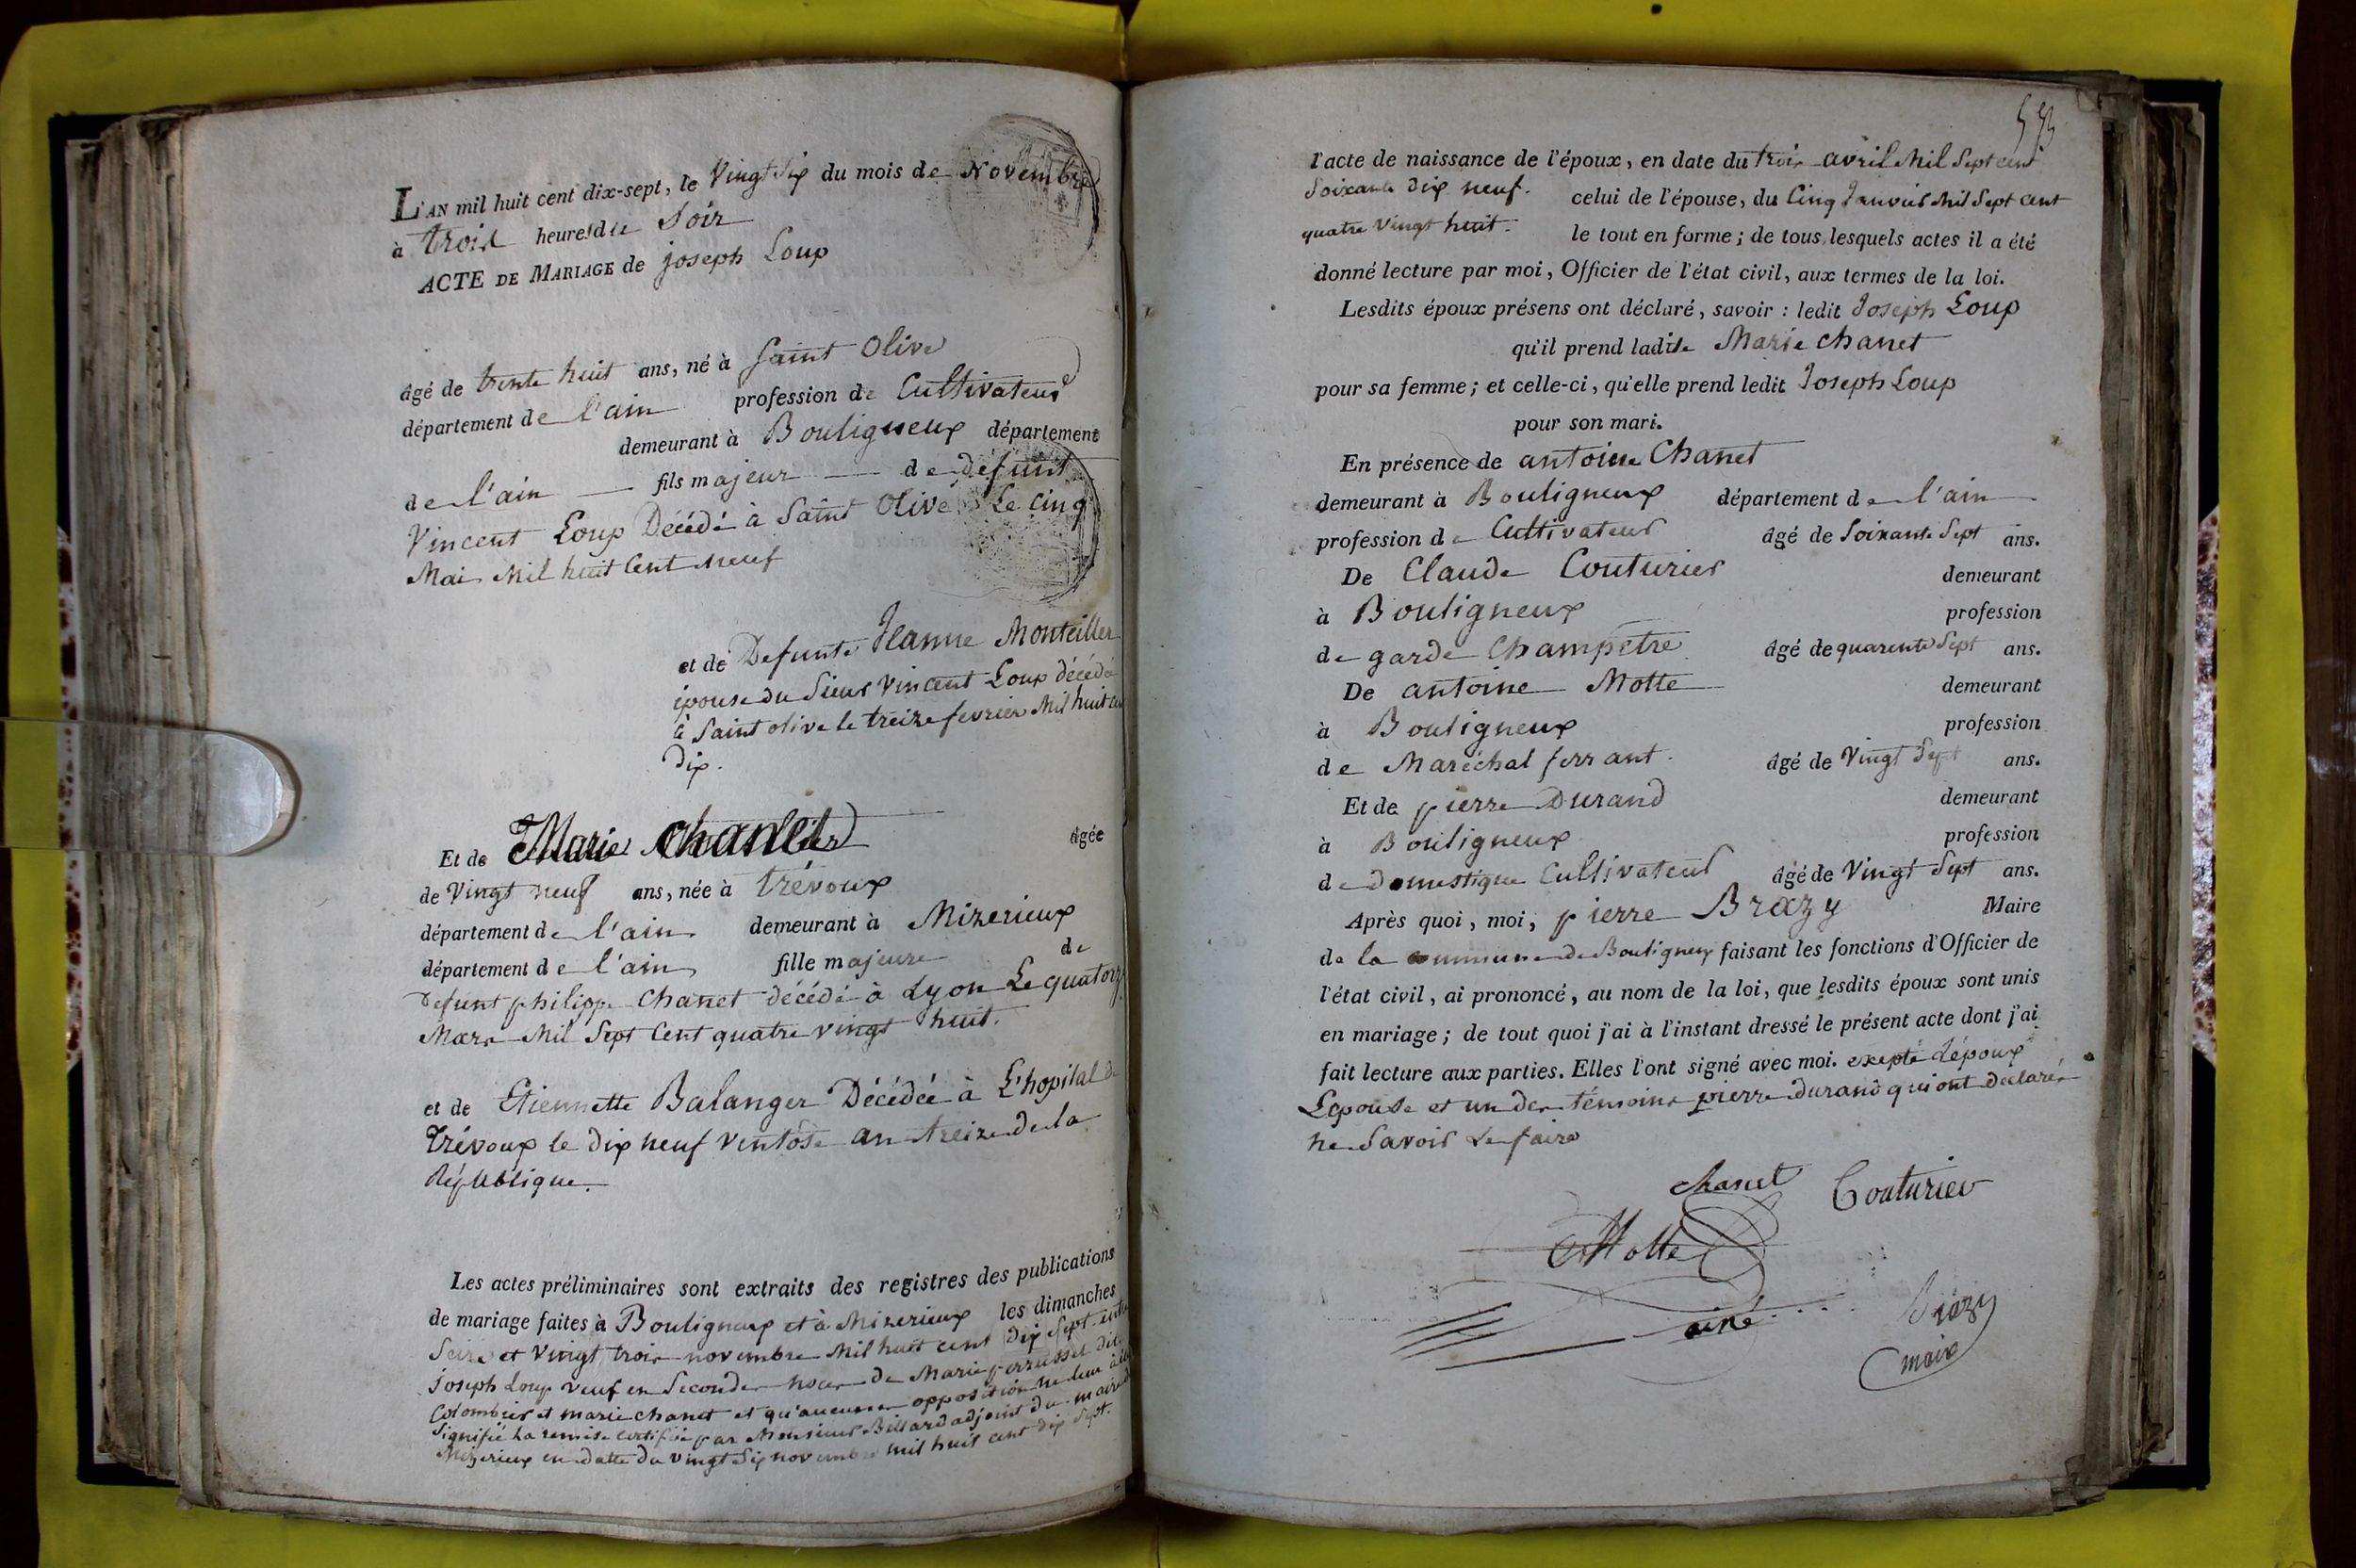 L'AN mil huit cent dix-sept, le Vingt Six du mois de Novembre
à trois heures du Soir
ACTE DE MARIAGE de joseph Loup
âgé de trente huit ans, né à Saint Olive
département de l'ain profession de Cultivateur
demeurant à Bouligneux département
de l'ain fils majeur de défunt
Vincent Loup Décédé à Saint Olive Le Cinq
Mai Mil huit Cent neuf
et de Defunte Jeanne Monteiller
épouse du Sieur Vincent Loup décédé
à Saint olive le treize fevrier Mil huit
Dix.
Et de Marie agée
de Vingt neuf ans, née à trévoux
département de l'ain demeurant à Mizerieux
département de l'ain fille majeure de
defunt philippe Chanet décédé à Lyon Le quatorze
Mars Mil Sept Cent quatre vingt huit.
et de Etiennette Balanger Décédée à L'hopital de
Trévoux le dix neuf Ventose an treize de la
République.
Les actes préliminaires sont extraits des registres des publications
de mariage faites à Bouligneux et à Mizerieux les dimanches
Seize et Vingt trois novembre Mil huit cent Dix Sept entre
joseph Loup veuf en Secondes noces de Marie perrussel dite
Colombier et marie chanet et qu'aucune opposition ne leur a été
Signifié La remise certifiée par Monsieur Billard adjoint du maire de
Mizerieux en datte du vingt Six novembre mil huit cent dix Sept.
l'acte de naissance de l'époux, en date du trois avril Mil Sept cent
Soixante Dix neuf. celui de l'épouse, du Cinq Janvier Mil Sept cent
quatre Vingt huit. le tout en forme; de tous lesquels actes il a été
donné lecture par moi, Officier de l'état civil, aux termes de la loi.
Lesdits époux présens ont déclaré, savoir : ledit Joseph Loup
qu'il prend ladite Marie chanet
pour sa femme; et celle-ci, qu'elle prend ledit Joseph Loup
pour son mari.
En présence de antoine Chanet
demeurant à Bouligneux département de l'ain
profession de Cultivateur âgé de Soixante Sept ans.
De Claude Couturier demeurant
à Bouligneux profession
de garde Champetre âgé de quarente Sept ans.
De antoine Motte demeurant
à Bouligneux profession
de Maréchal ferrant. âgé de Vingt Sept ans.
Et de pierre Durand demeurant
à Bouligneux profession
de domestique Cultivateur âgé de Vingt Sept ans.
Après quoi, moi, pierre Brazy Maire
de la commune de Bouligneux faisant les fonctions d'Officier de
l'état civil, ai prononcé, au nom de la loi, que lesdits époux sont unis
en mariage; de tout quoi j'ai à l'instant dressé le présent acte dont j'ai
fait lecture aux parties. Elles l'ont signé avec moi. excepté L'époux
L'epouse et un des témoins pierre durand qui ont declarés
ne Savoir Le faire
chanet Couturier
Motte
ainé
Brazy
maire